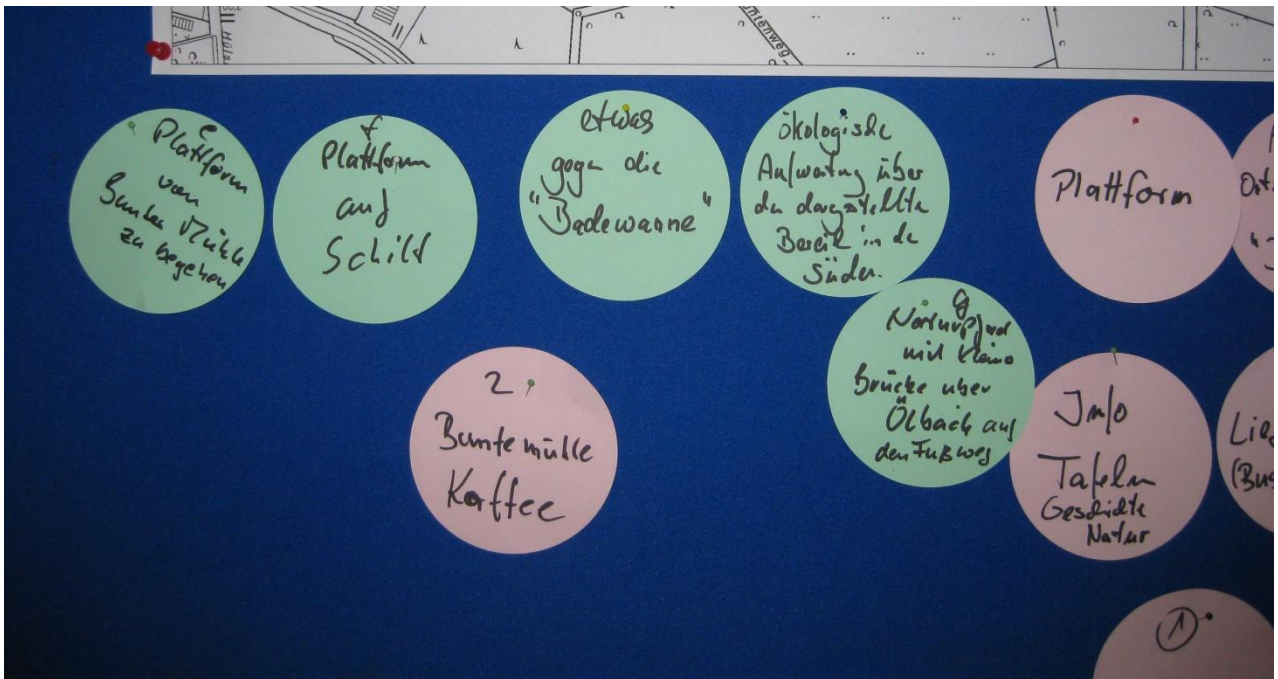 untenweg
e
Plattform
von
Bunten Mühle
zu begehen
f
Plattform
auf
Schilf
etwas
gegen die
"Badewanne"
ökologische
Aufwertung über
den dargestellte
Bereich in de
Süden.
Plattform
Ort
g
Naturpfad
mit kleine
Brücke über
Ölbach auf
den Fußweg
2
Buntemühle
Kaffee
Info
Tafeln
Geschichte
Natur
(Bus
1